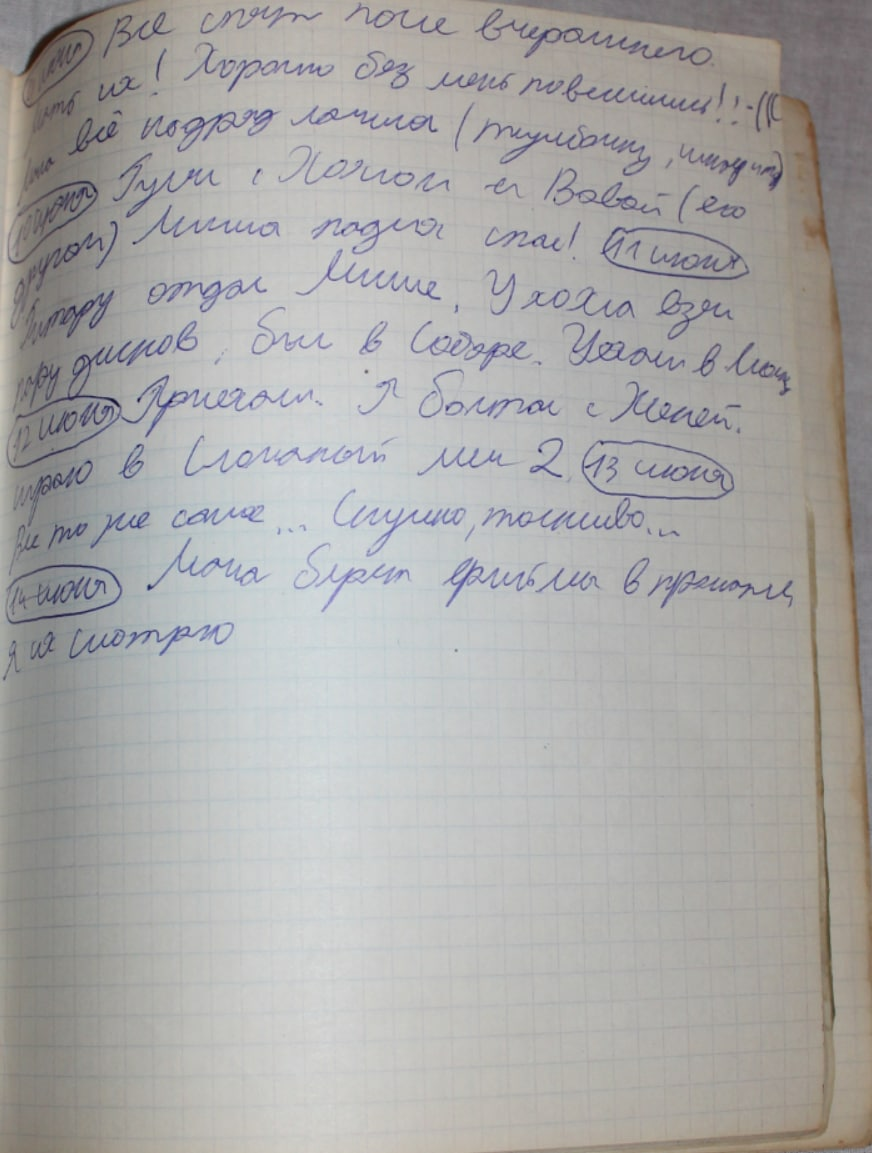 июня Все спят после вчерашнего.
их! Хорошо без меня повесились!!:-(((
всё подряд ломала (тумбочку,
10 июня Гулял с Хохлом и Вовой (его
другом) Миша падла спал! 11 июня
Гитару отдал Мише. У хохла взял
пару дисков, был в Соборе. Уехали в
12 июня Приехали. Я болтал с Женей.
играю в Сломаный меч 2. 13 июня
Все то же самое... Скучно, тоскливо...
14 июня Мама берёт фильмы в прокате,
Я их смотрю